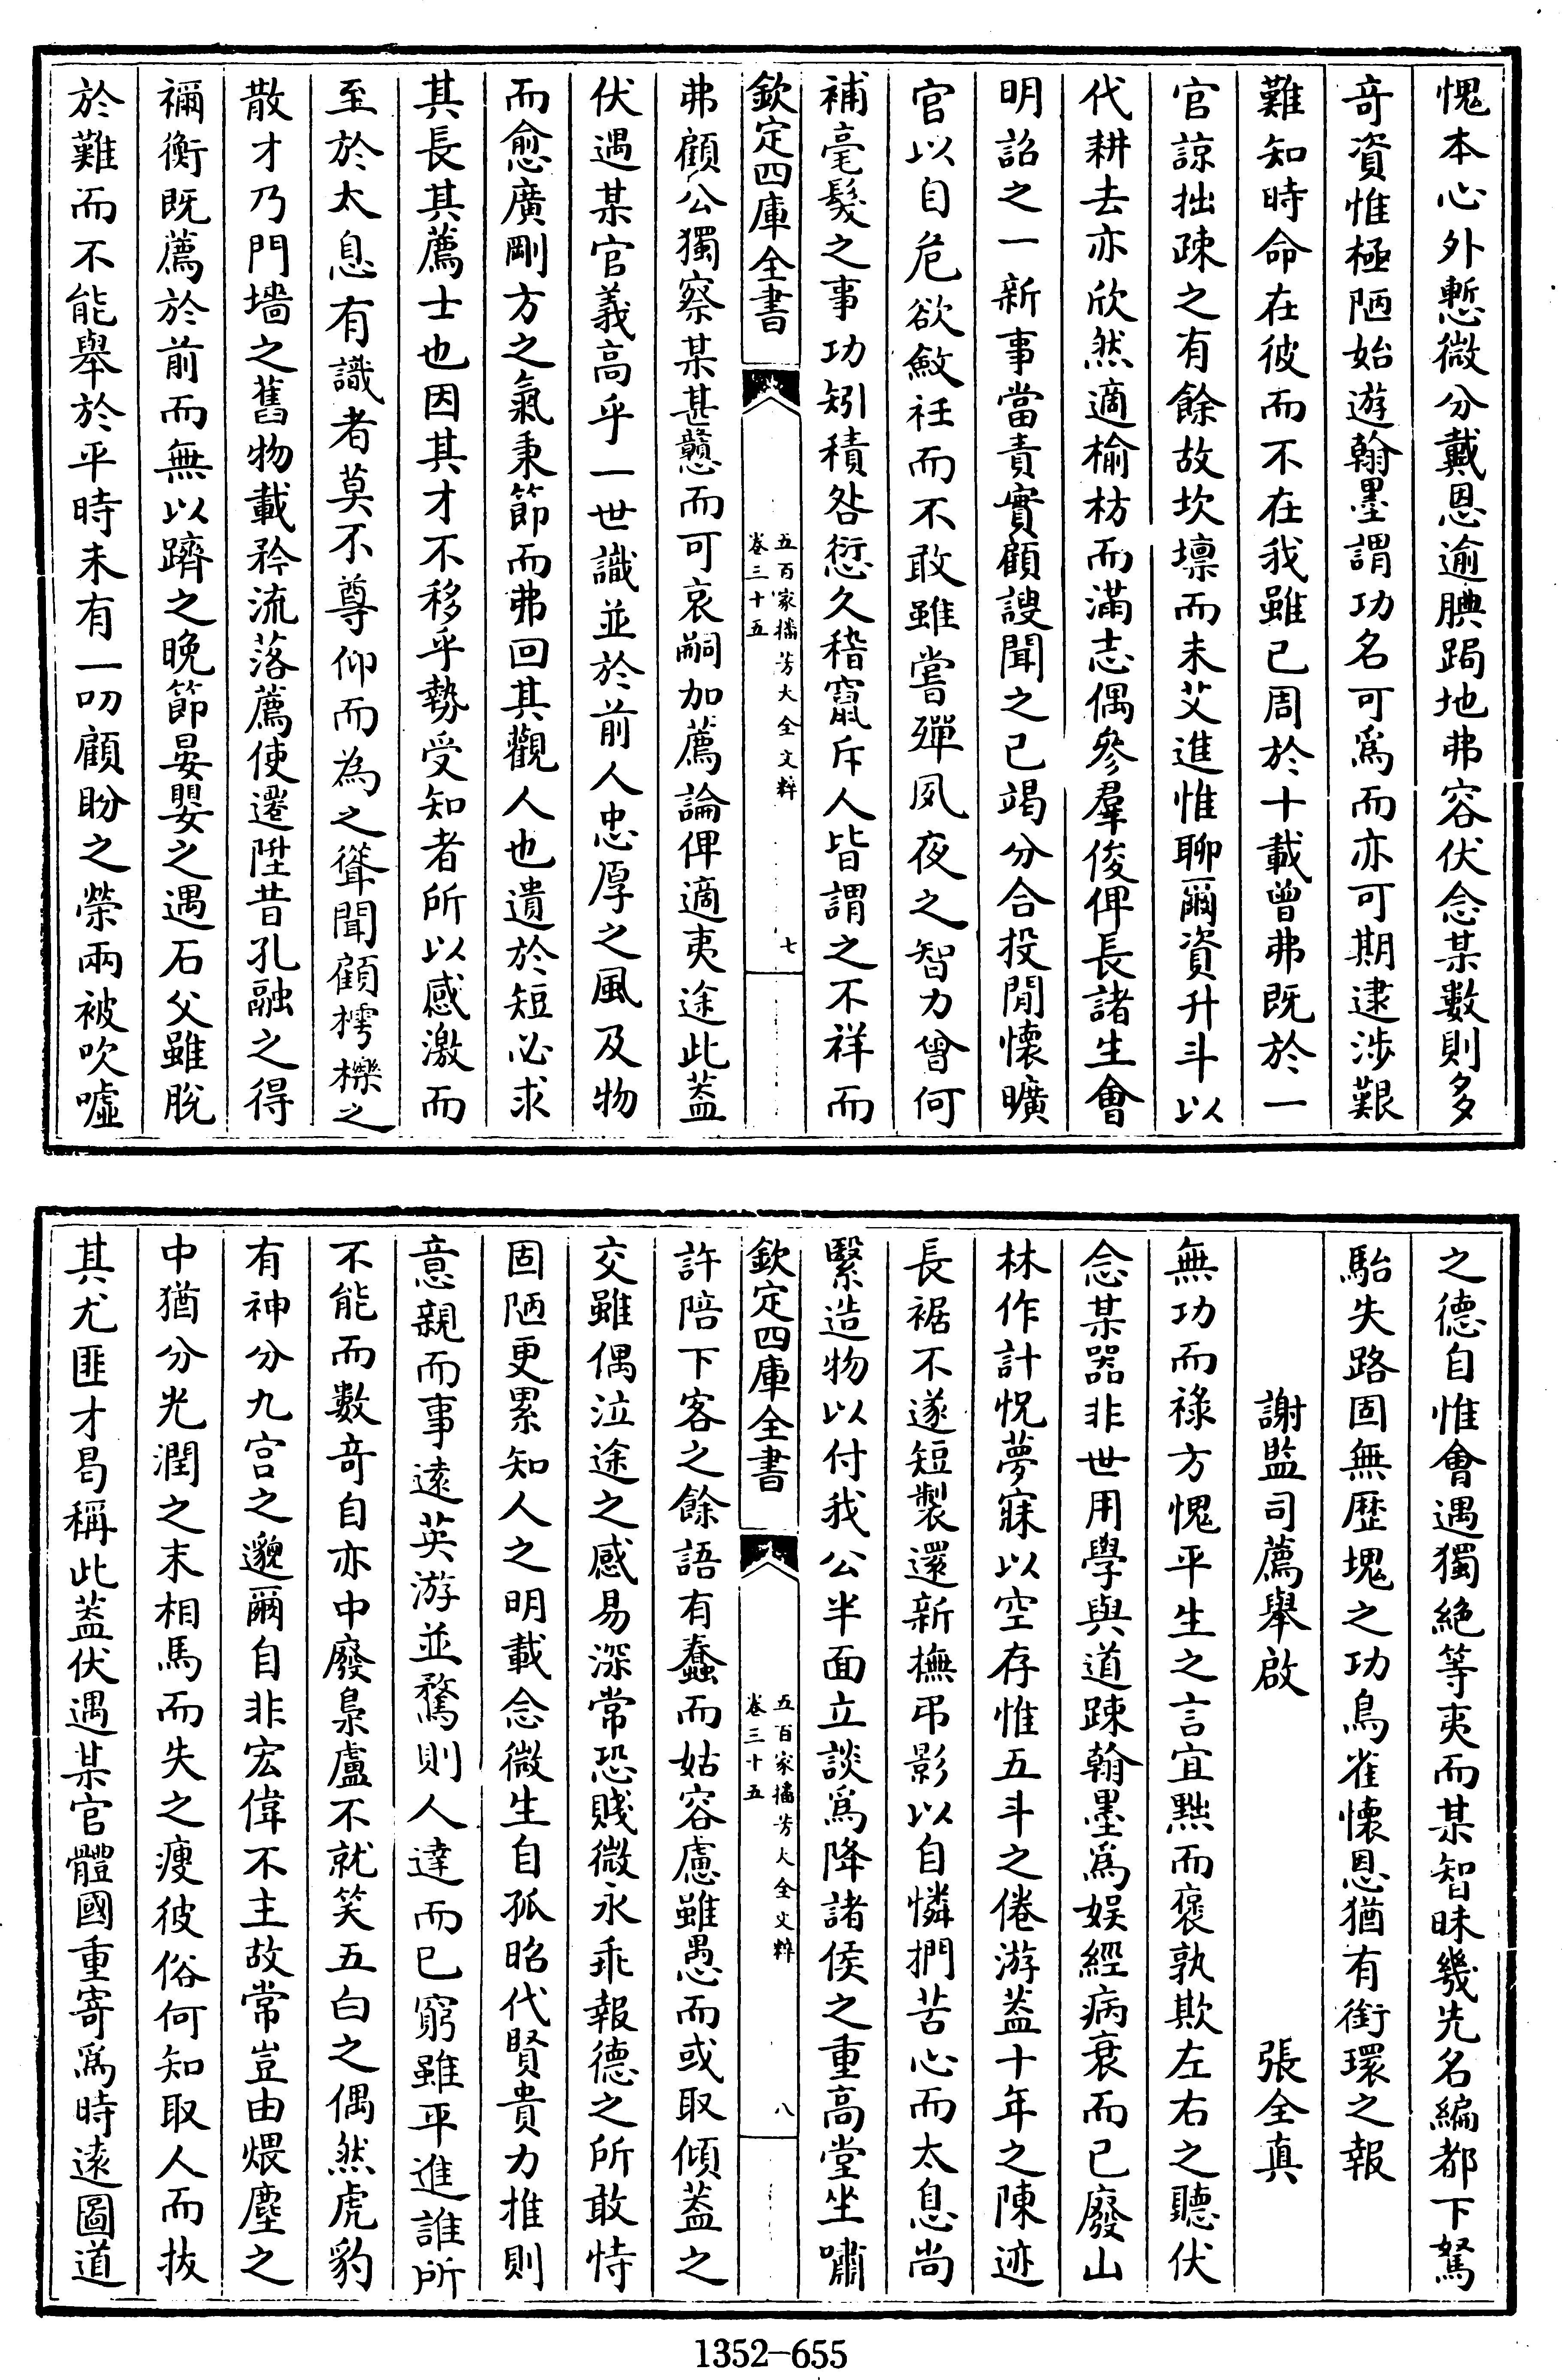 愧本心外慙微分戴恩逾腆跼地弗容伏念某數則多
奇資惟極陋始遊翰墨謂功名可爲而亦可期逮涉艱
難知時命在彼而不在我雖已周於十載曾弗既於一
官諒拙疎之有餘故坎壈而未艾進惟聊爾資升斗以
代耕去亦欣然適榆枋而滿志偶參羣俊俾長諸生會
明詔之一新事當責實顧謏聞之已竭分合投閒懷曠
官以自危欲斂衽而不敢雖嘗殫夙夜之智力曾何
補毫髮之事功矧積咎愆久稽竄斥人皆謂之不祥而
欽定四庫全書
五百家播芳大全文粹
卷三十五
七
弗顧公獨察某甚戇而可哀嗣加薦論俾適夷途此葢
伏遇某官義高乎一世識並於前人忠厚之風及物
而愈廣剛方之氣秉節而弗回其觀人也遺於短必求
其長其薦士也因其才不移乎勢受知者所以感激而
至於太息有識者莫不尊仰而為之聳聞顧樗櫟之
散才乃門墻之舊物載矜流落薦使遷陞昔孔融之得
禰衡既薦於前而無以躋之晚節晏嬰之遇石父雖脫
於難而不能舉於平時未有一叨顧盼之榮兩被吹噓
之德自惟會遇獨絶等夷而某智昧幾先名編都下駑
駘失路固無歴塊之功鳥雀懷恩猶有銜環之報
謝監司薦舉啟
張全真
無功而祿方愧平生之言宜黜而褒孰欺左右之聽伏
念某器非世用學與道疎翰墨爲娱經病衰而已廢山
林作計怳夢寐以空存惟五斗之倦游葢十年之陳迹
長裾不遂短製還新撫弔影以自憐捫苦心而太息尚
緊造物以付我公半面立談爲降諸侯之重高堂坐嘯
欽定四庫全書
五百家播芳大全文粹
卷三十五
八
許陪下客之餘語有蠢而姑容慮雖愚而或取傾葢之
交雖偶泣途之感易深常恐賤微永乖報德之所敢恃
固陋更累知人之明載念微生自孤昭代賢貴力推則
意親而事逺英游並騖則人達而已窮雖平進誰所
不能而數竒自亦中廢梟盧不就笑五白之偶然虎豹
有神分九宫之邈爾自非宏偉不主故常豈由煨塵之
中猶分光潤之末相馬而失之瘦彼俗何知取人而拔
其尤匪才曷稱此葢伏遇某官體國重寄爲時逺圖道
1352-655